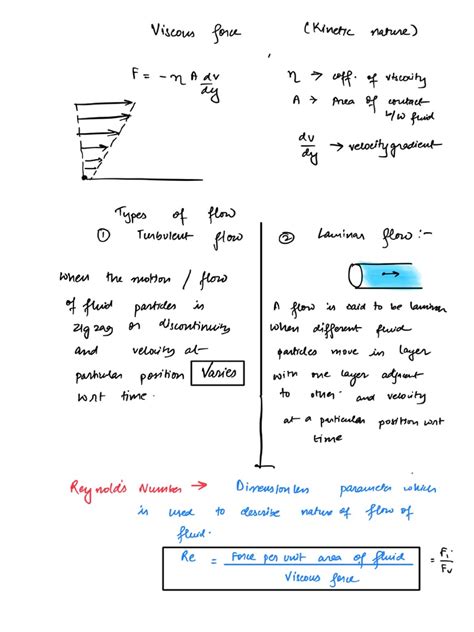 Viscous force (Kinetic nature)
F = - η A dv/dy
η → coff. of viscosity
A → Area of contact
b/w fluid
dv/dy → velocity gradient
Types of flow
① Turbulent flow
When the motion / flow
of fluid particles is
zig zag or discontinuity
and velocity at
particular position Varies
wrt time.
② Laminar flow :-
A flow is said to be laminar
when different fluid
particles move in layer
with one layer adjacent
to other and velocity
at a particular position wrt
time
Reynold's Number → Dimensionless parameter which
is used to describe nature of flow of
fluid.
Re = Force per unit area of fluid / Viscous force = Fi / Fv